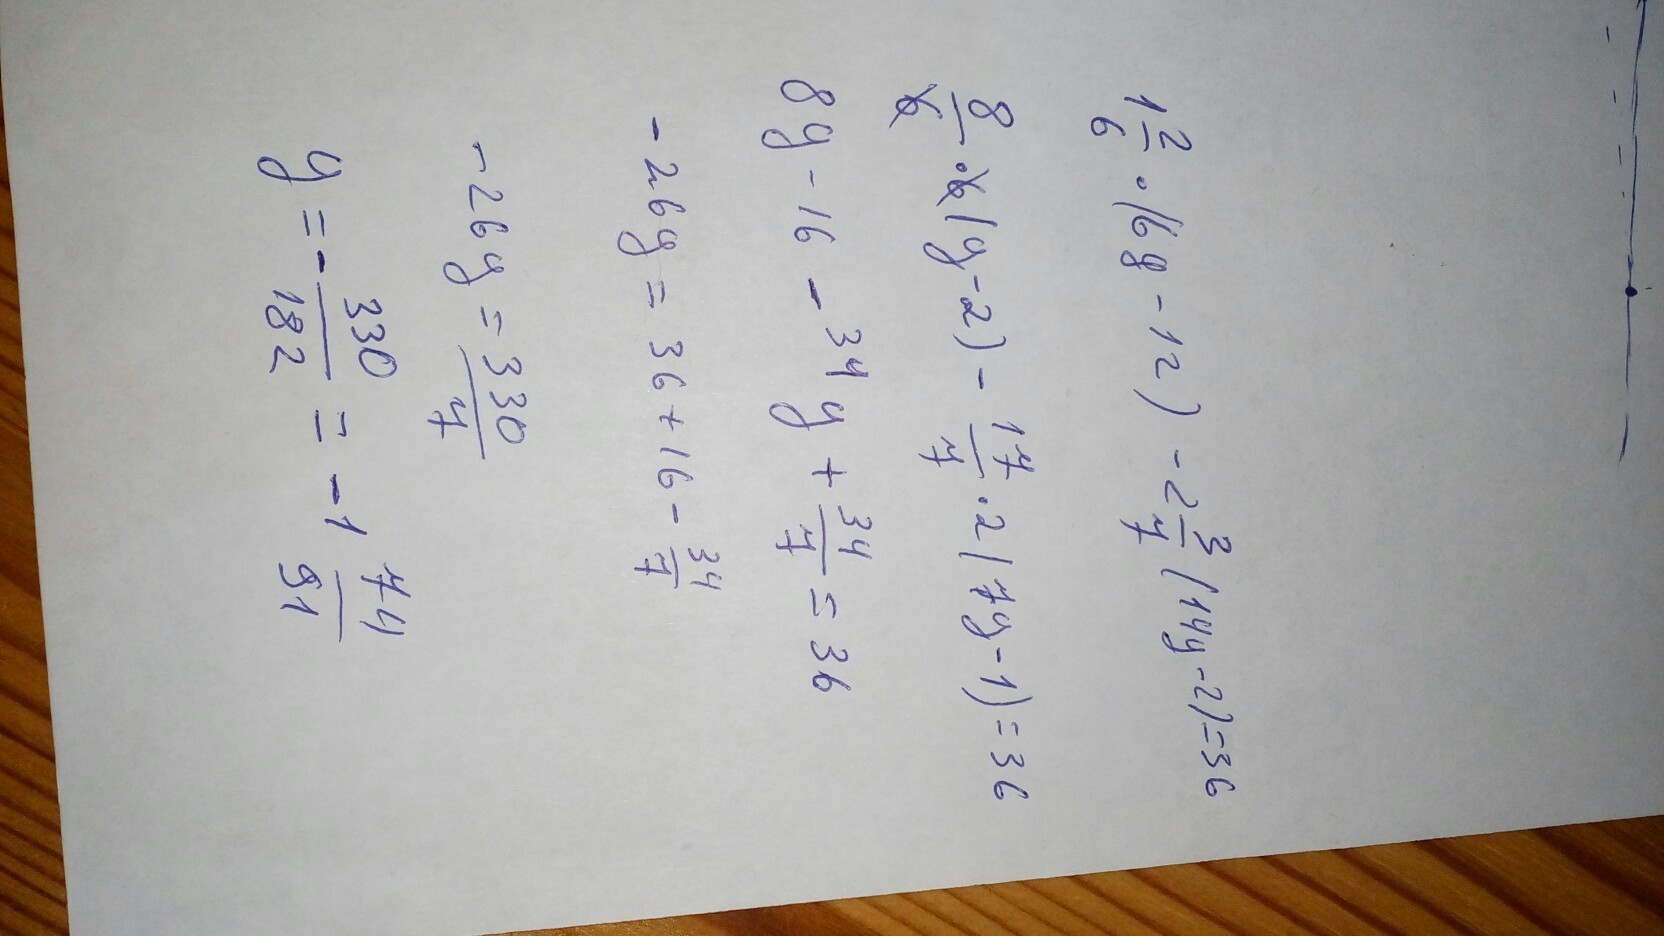 1 2/6 · (6y - 12) - 2 3/7 (14y - 2) = 36
8/6 · 6(y - 2) - 17/7 · 2(7y - 1) = 36
8y - 16 - 34y + 34/7 = 36
-26y = 36 + 16 - 34/7
-26y = 330/7
y = - 330/182 = -1 74/91